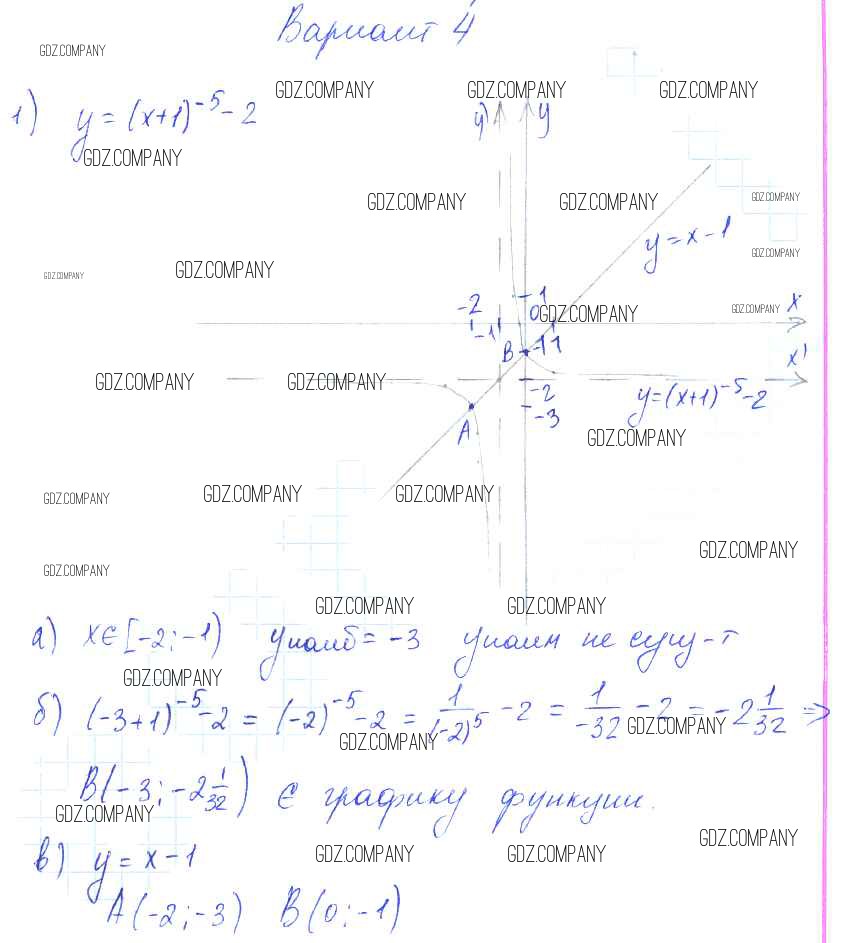 Вариант 4
GDZ.COMPANY
GDZ.COMPANY GDZ.COMPANY GDZ.COMPANY
1) y = (x+1)⁻⁵ - 2
y' y
GDZ.COMPANY
GDZ.COMPANY GDZ.COMPANY GDZ.COMPANY
y = x - 1
GDZ.COMPANY
GDZ.COMPANY GDZ.COMPANY
-2 1 x
-1 0 GDZ.COMPANY GDZ.COMPANY
B -1 1
x'
GDZ.COMPANY GDZ.COMPANY
-2 y=(x+1)⁻⁵-2
-3
A
GDZ.COMPANY
GDZ.COMPANY GDZ.COMPANY GDZ.COMPANY
GDZ.COMPANY
GDZ.COMPANY
GDZ.COMPANY GDZ.COMPANY
а) x∈[-2;-1) yнаиб = -3 yнаим не сущ-т
GDZ.COMPANY
б) (-3+1)⁻⁵-2 = (-2)⁻⁵-2 = 1/(-2)⁵ - 2 = 1/-32 - 2 = -2 1/32 ⇒
GDZ.COMPANY GDZ.COMPANY
B(-3; -2 1/32) ∈ графику функции.
GDZ.COMPANY
GDZ.COMPANY GDZ.COMPANY GDZ.COMPANY
в) y = x - 1
A(-2;-3) B(0;-1)